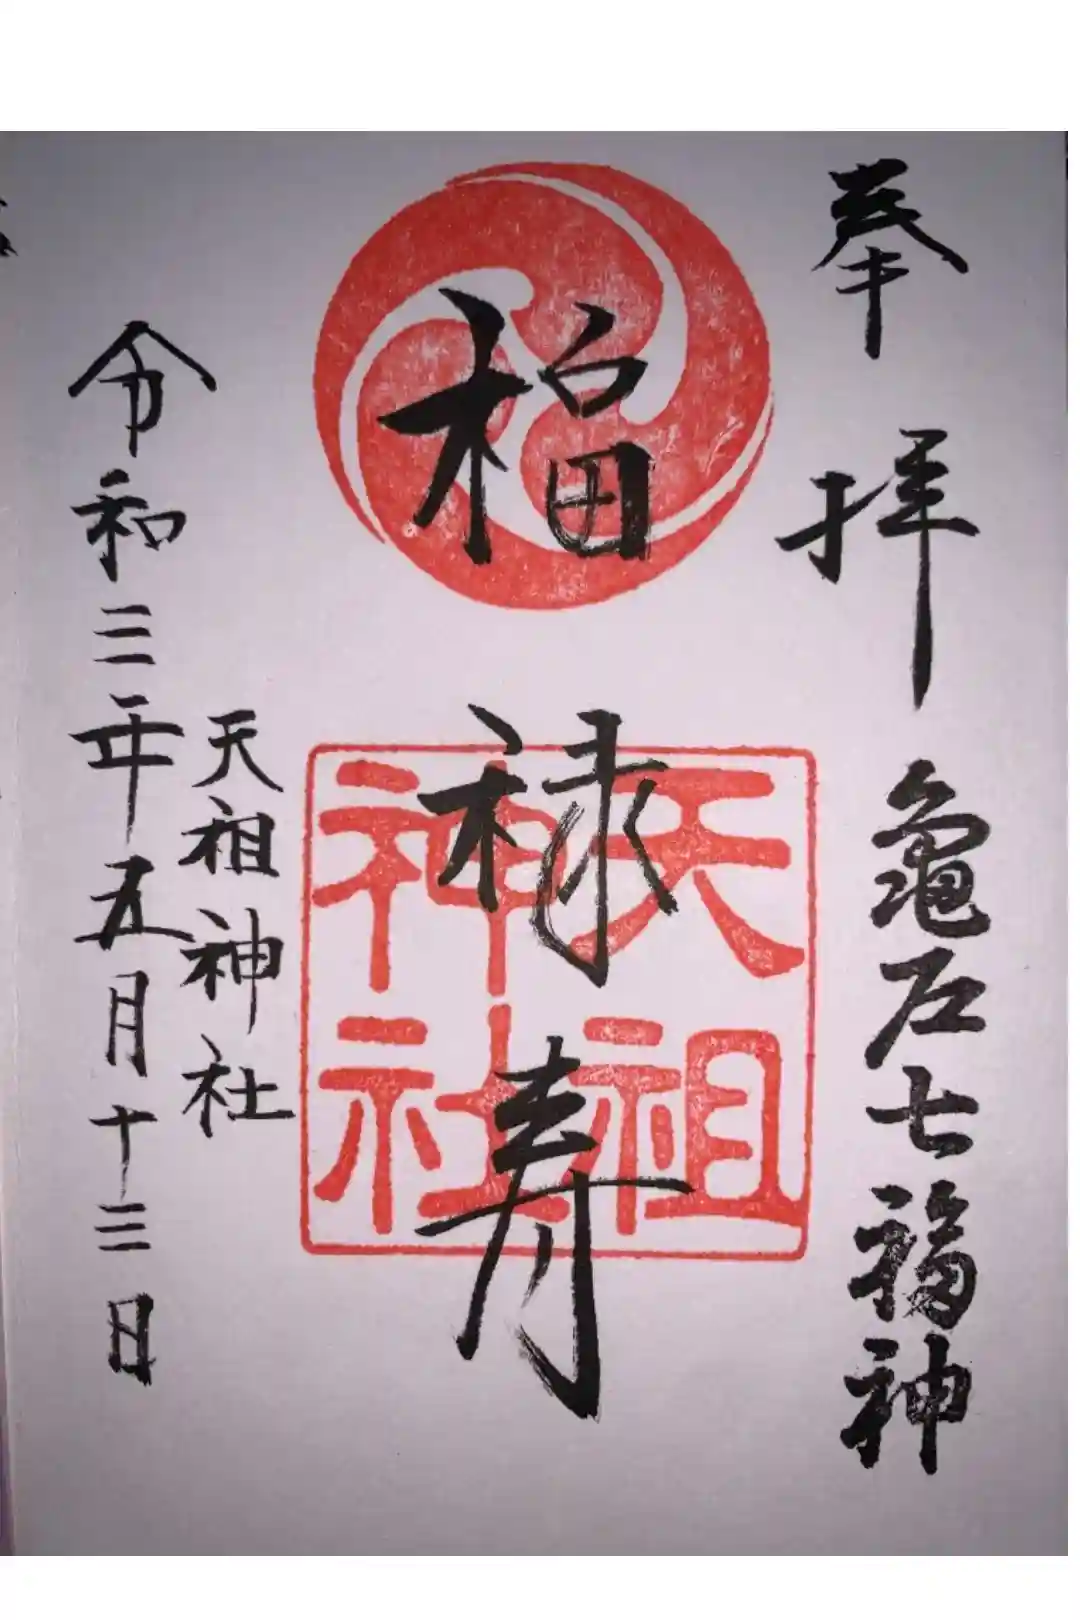 奉拝
亀戸七福神
福禄寿
天祖
神社
天祖神社
令和三年五月十三日